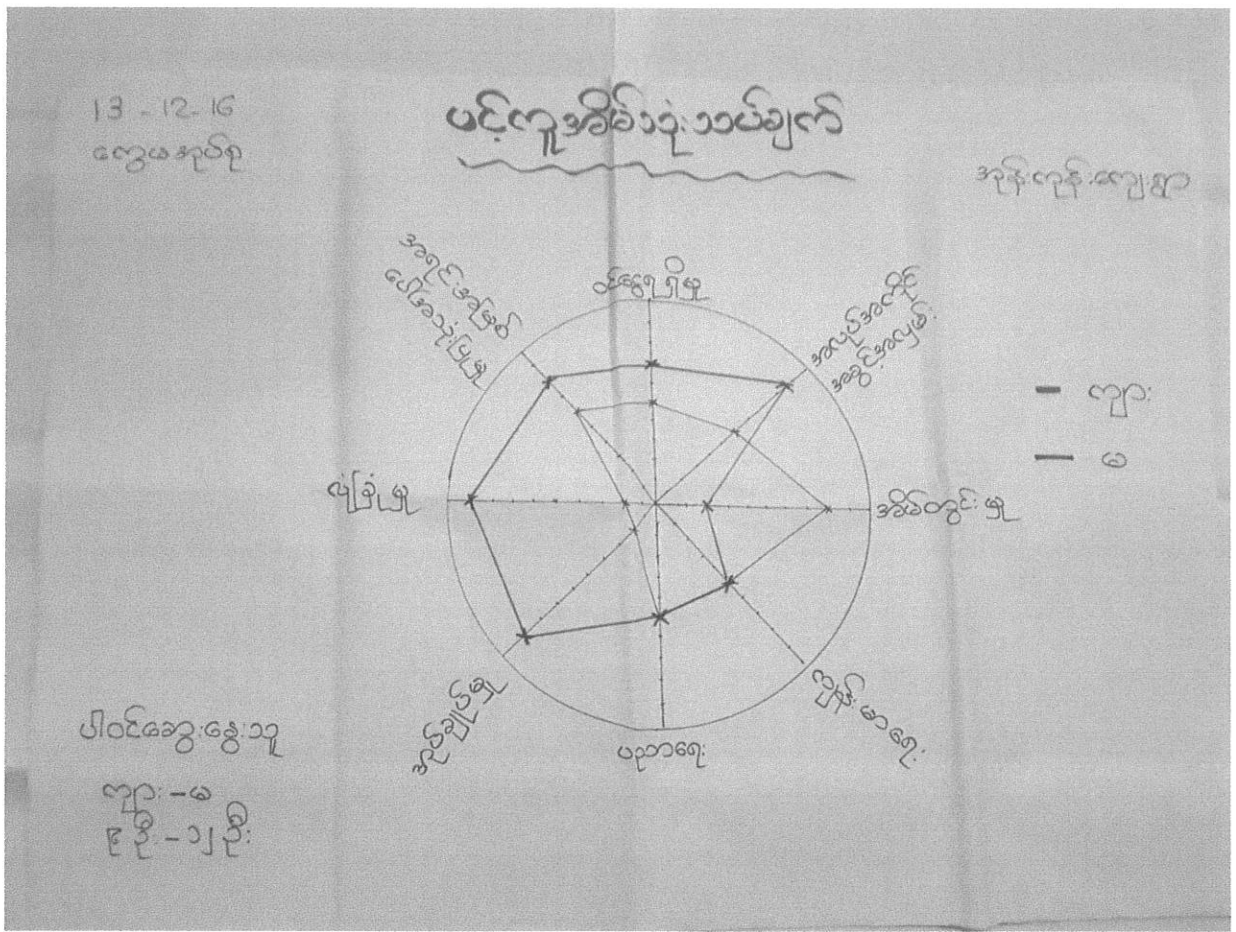 13-12-16
ကွေ့မအုပ်စု
ပင့်ကူအိမ်သုံးသပ်ချက်
အုန်းကုန်းကျေးရွာ
အရင်းအမြစ်
ပေါ်အသုံးပြုမှု
ဝင်ငွေရရှိမှု
အလုပ်အကိုင်
အခွင့်အလမ်း
ကျား
မ
လုံခြုံမှု
အိမ်တွင်းမှု
အုပ်ချုပ်မှု
ပညာရေး
ကျန်းမာရေး
ပါဝင်ဆွေးနွေးသူ
ကျား - မ
၉ ဦး - ၁၂ ဦး